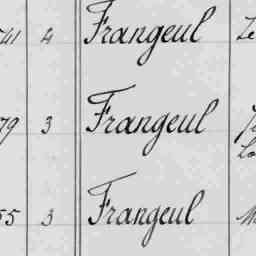 541 4 Frangeul Ze
79 3 Frangeul
55 3 Frangeul